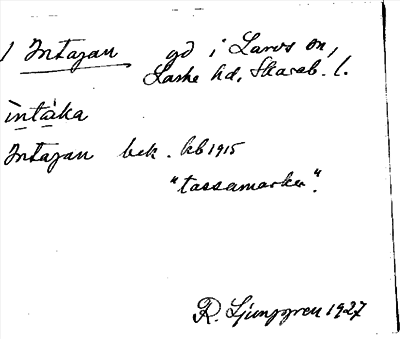 1 Intagan gd i Larvs sn,
Laske hd, Skarab. l.
ìntàka
Intagan bek. kb 1915
"tassamarker".
R. Ljunggren 1927